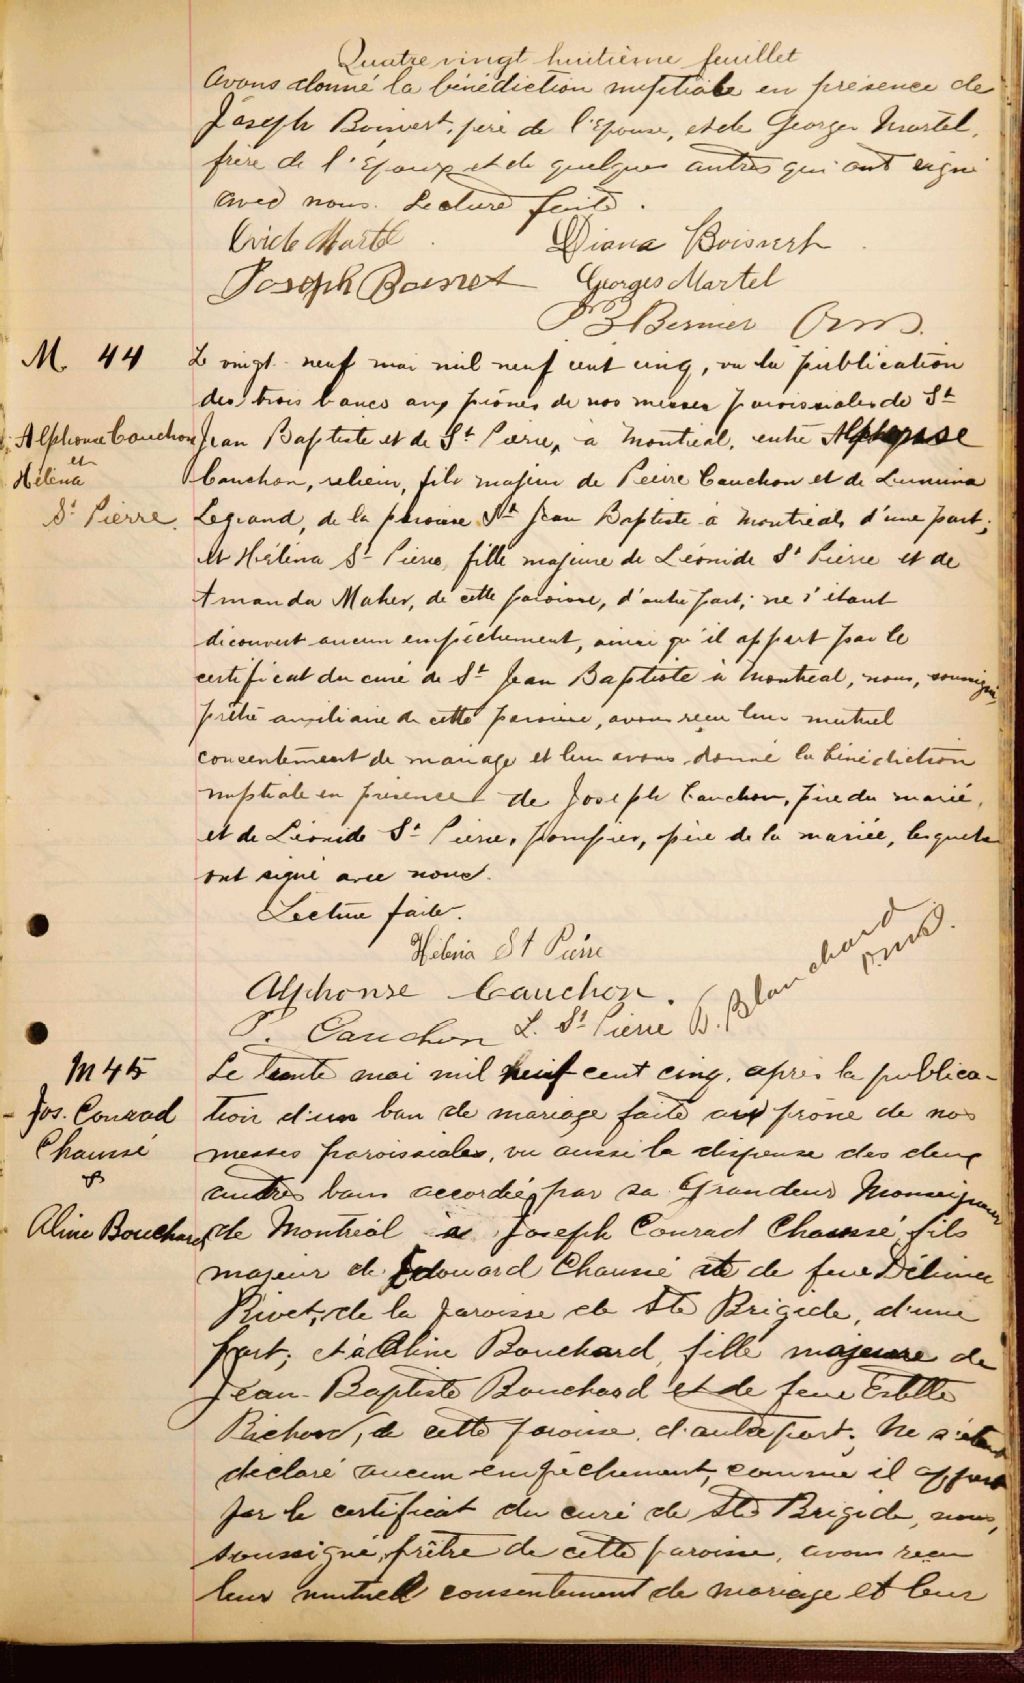 Quatre vingt huitième feuillet
avons donné la bénédiction nuptiale en présence de
Joseph Boisvert, père de l'épouse, et de Georges Martel,
frère de l'Epoux et de quelques autres qui ont signé
avec nous. Lecture faite.
Ovide Martel
Diana Boisvert
Joseph Boisvert
Georges Martel
Bernier O.M.I.
M. 44
Alphonse Cauchon
et
Hélèna
St Pierre.
Le vingt-neuf mai mil neuf cent cinq, vu la publication
des trois bancs aux prônes de nos messes paroissiales de St
Jean Baptiste et de St Pierre, à Montréal, entre Alphonse
Cauchon, relieur, fils majeur de Pierre Cauchon et de Lumina
Legrand, de la paroisse St Jean Baptiste à Montréal, d'une part;
et Hélèna St Pierre, fille majeure de Léonide St Pierre et de
Amanda Maher, de cette paroisse, d'autre part; ne s'étant
découvert aucun empêchement, ainsi qu'il appert par le
certificat du curé de St Jean Baptiste à Montréal, nous, soussigné,
prêtre auxiliaire de cette paroisse, avons reçu leur mutuel
consentement de mariage et leur avons donné la bénédiction
nuptiale en présence de Joseph Cauchon, père du marié,
et de Léonide St Pierre, pompier, père de la mariée, lesquels
ont signé avec nous.
Lecture faite.
Hélèna St Pierre
Alphonse Cauchon.
P. Cauchon L. St Pierre
Blanchard
o.m.i.
M 45
Jos. Conrad
Chaussé
&
Aline Bouchard
Le trente mai mil neuf cent cinq, après la publica-
tion d'un ban de mariage faite au prône de nos
messes paroissiales, vu aussi la dispense des deux
autres bans accordée par sa Grandeur Monseigneur
de Montréal à Joseph Conrad Chaussé, fils
majeur de Edouard Chaussé et de feue Délima
Rivet, de la paroisse de Ste Brigide, d'une
part; et à Aline Bouchard, fille majeure de
Jean-Baptiste Bouchard et de feue Estelle
Richard, de cette paroisse, d'autre part; Ne s'étant
déclaré aucun empêchement, comme il appert
par le certificat du curé de Ste Brigide, nous,
soussigné, prêtre de cette paroisse, avons reçu
leur mutuel consentement de mariage et leur